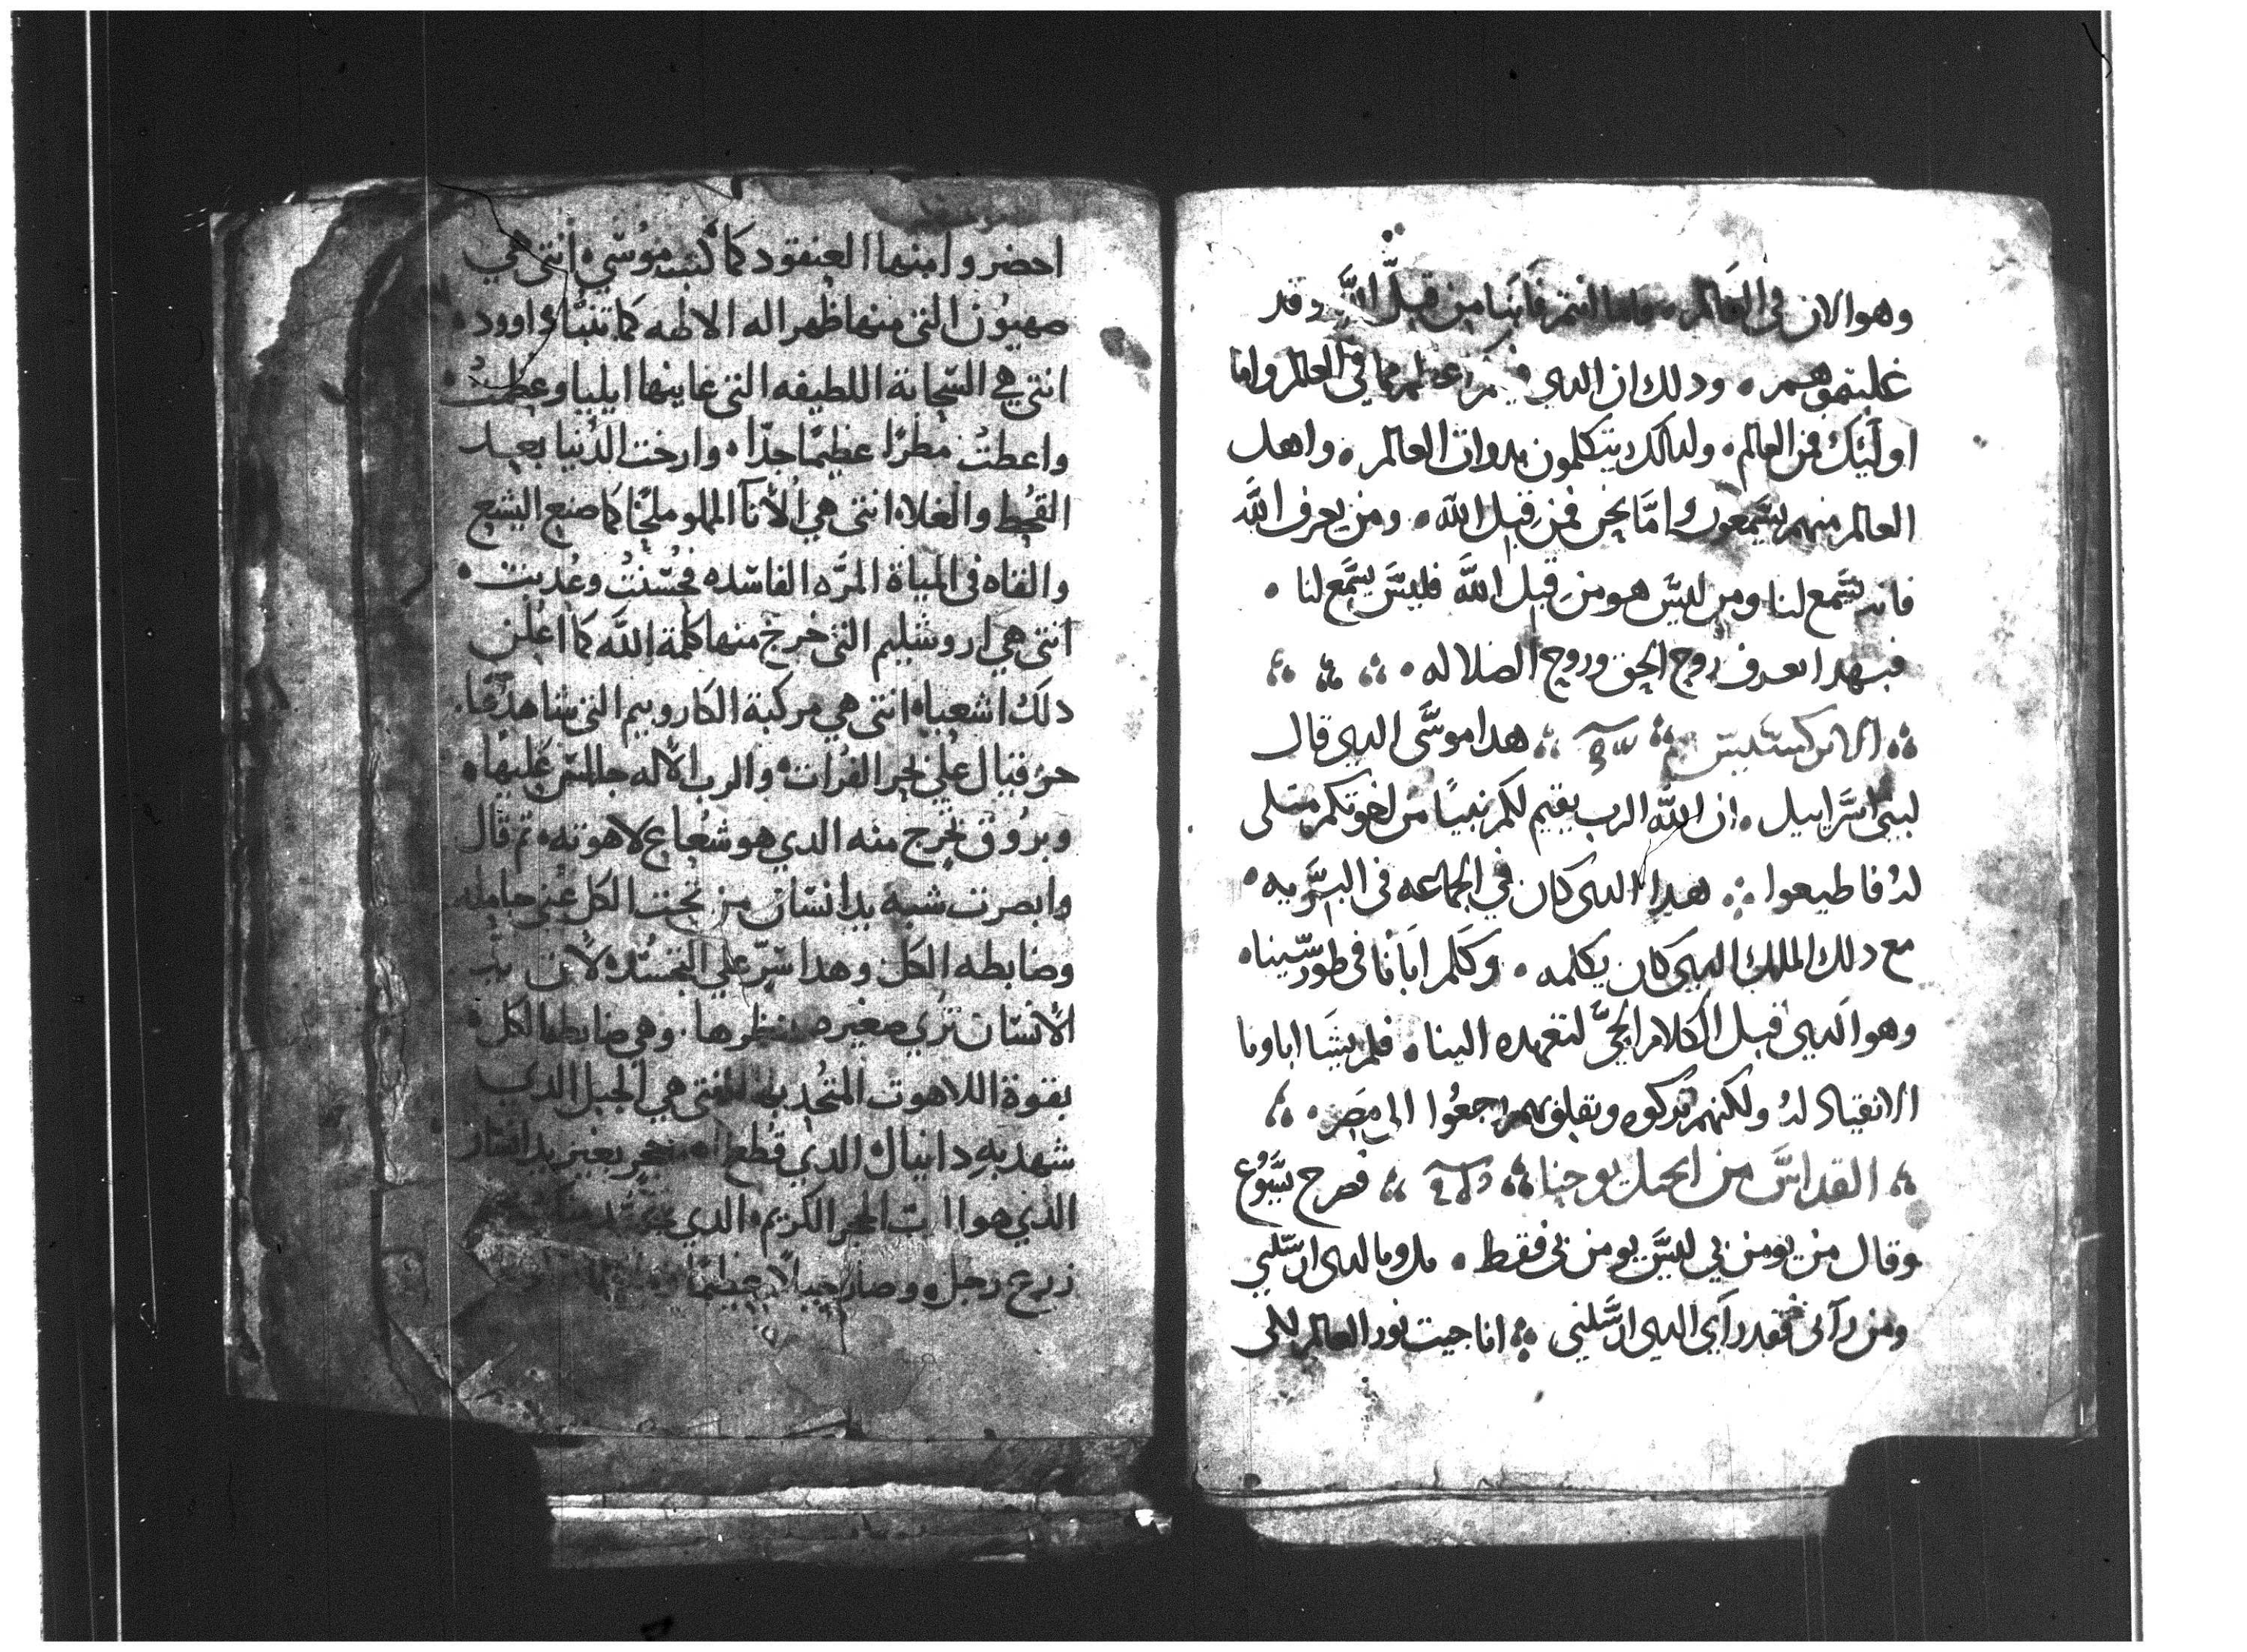 وهوا الان في العالم • واما انتم فابنا من قبل الله وقد
غلبتموهم • ودلك ان الدي فيكم اعظم مما في العالم واما
اوليَك فمن العالم • ولدالك يتكلمون بدوات العالم • واهل
العالم منهم يسَّمعون وامَّا نحن فمن قِبل الله • ومن يعرف اللَّه
فانه يسَّمع لنا ومن ليسَّ هو من قِبل اللَّه فليسَّ يسَّمع لنا •
فبهدا نعرف روح الحق وروح الضلاله •
الابركسَّيسَّ هدا موسَّى الدي قال
لبني اسَّراييل • ان اللَّه الرب يقيم لكم نبيًا من اخوتكم متلى
لهُ فاطيعوا هدا الدى كان في الجماعه فى البرَّيه •
مع دلك الملاك الدى كان يكلمه • وكَلم ابَانا فى طور سَّينا •
وهو الَدي قبل الكلام الحيَّ لتعهده الينا • فلم يشَا اباونا
الانقياد لهُ ولكنهم تركوه وبقلوبهم رجعُوا الى مِصَر •
القداسَّ من انجيل يوحنا فصرخ يسَّوُع
وقال من يومن بي ليسَّ يومن بي فقط • بل وبالدى ارسَّلني
ومن رآنى فقد رآي الدي ارسَّلني انا جيت نور العالم لكى
احضروا منها العنقود كما كتب موُسّي • انتي هي
صهيوُن التي منها ظهر اله الالهه كما تنبّا داوود •
انتي هي السّحابة اللطيفه التي عاينها ايليا وعظمتُ •
واعطتُ مطرًا عظيمًا جدّا • وارخت الدُنيا بعد
القحُط والغلاء انتى هي اُلأنآ المملو ملحًا كما صنع اليشع
والقاه فى المياة المرّه الفاسّده فحُسّنتُ وعُدبت •
انتى هي اروشليم التي خرج منها كلمة اللَّه كما اعلن
دلك اشعياء انتى هي مركبة الكاروبيم التي شاهدها
حزقيال علي نحر الفُرات • والرب الأله جالسّ عليها •
وبروُق تخرج منه الدي هو شعُاع لاهوته • ثم قال
وابصرت شبة يد انسّان من تحت الكل عُني حامله
وضابطه الكل وهدا سّرّ علي التجسّد • لأن يد
الأنسّان تري صغيره منظرها • وهي ضابطه الكل •
بقوة اللاهوت المتحُد به انتى هي الجبل الدي
شهد بهِ دانيال الدي قُطع حجر بغير يد انسّان
الذي هو ات الحجر الكريم • الدي
زرع رجل • وصار جبلاً عظيمًا